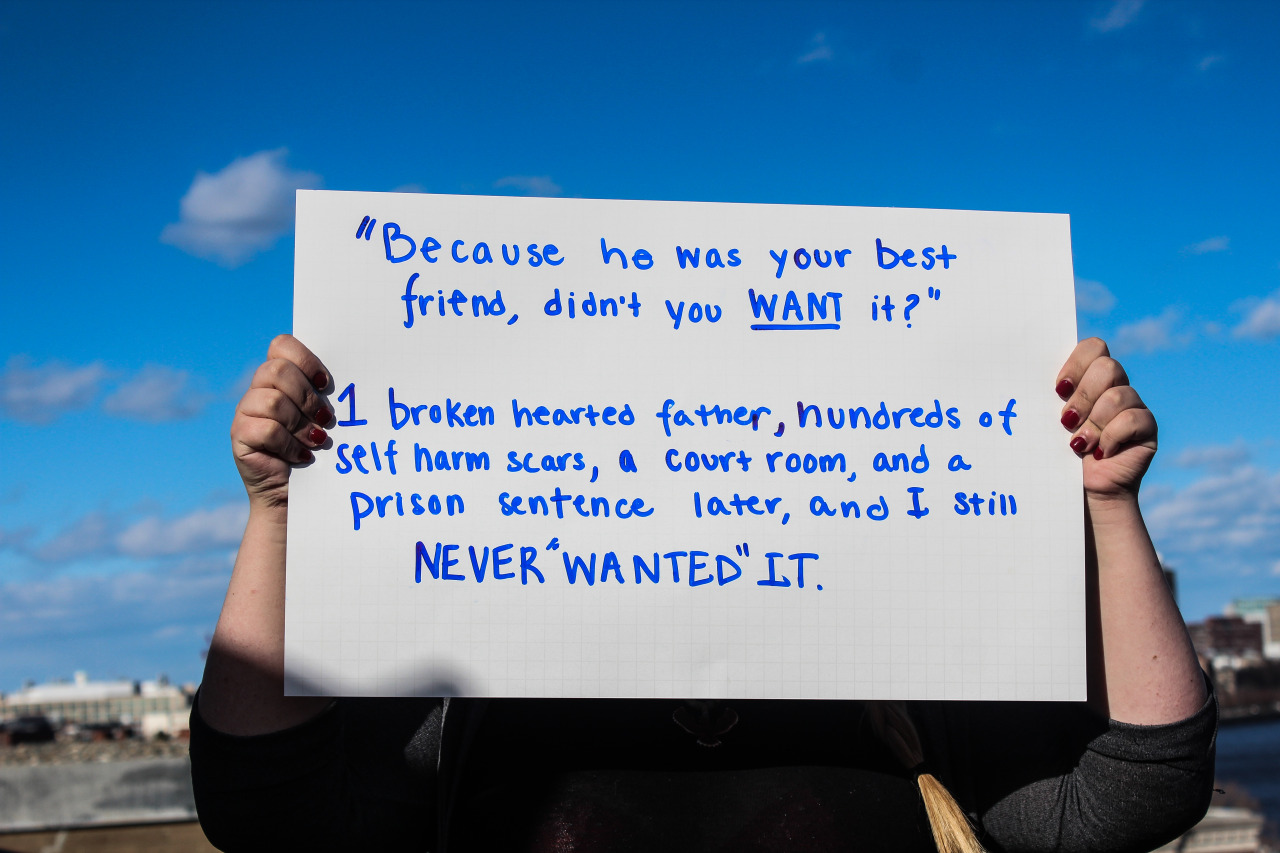 "Because he was your best
friend, didn't you WANT it?"
1 broken hearted father, hundreds of
self harm scars, a court room, and a
prison sentence later, and I still
NEVER "WANTED" IT.